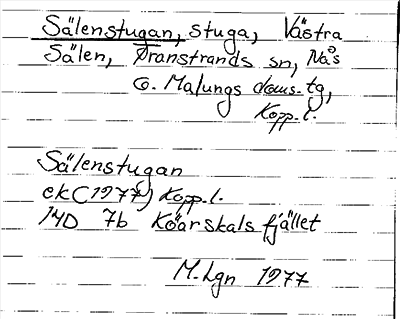 Sälenstugan, stuga, Västra
Sälen, Transtrands sn, Nås
o. Malungs doms. tg,
Kopp. l.
Sälenstugan
ek (1977) Kopp. l.
14D 7b Köarskalsfjället
M. Lgn 1977